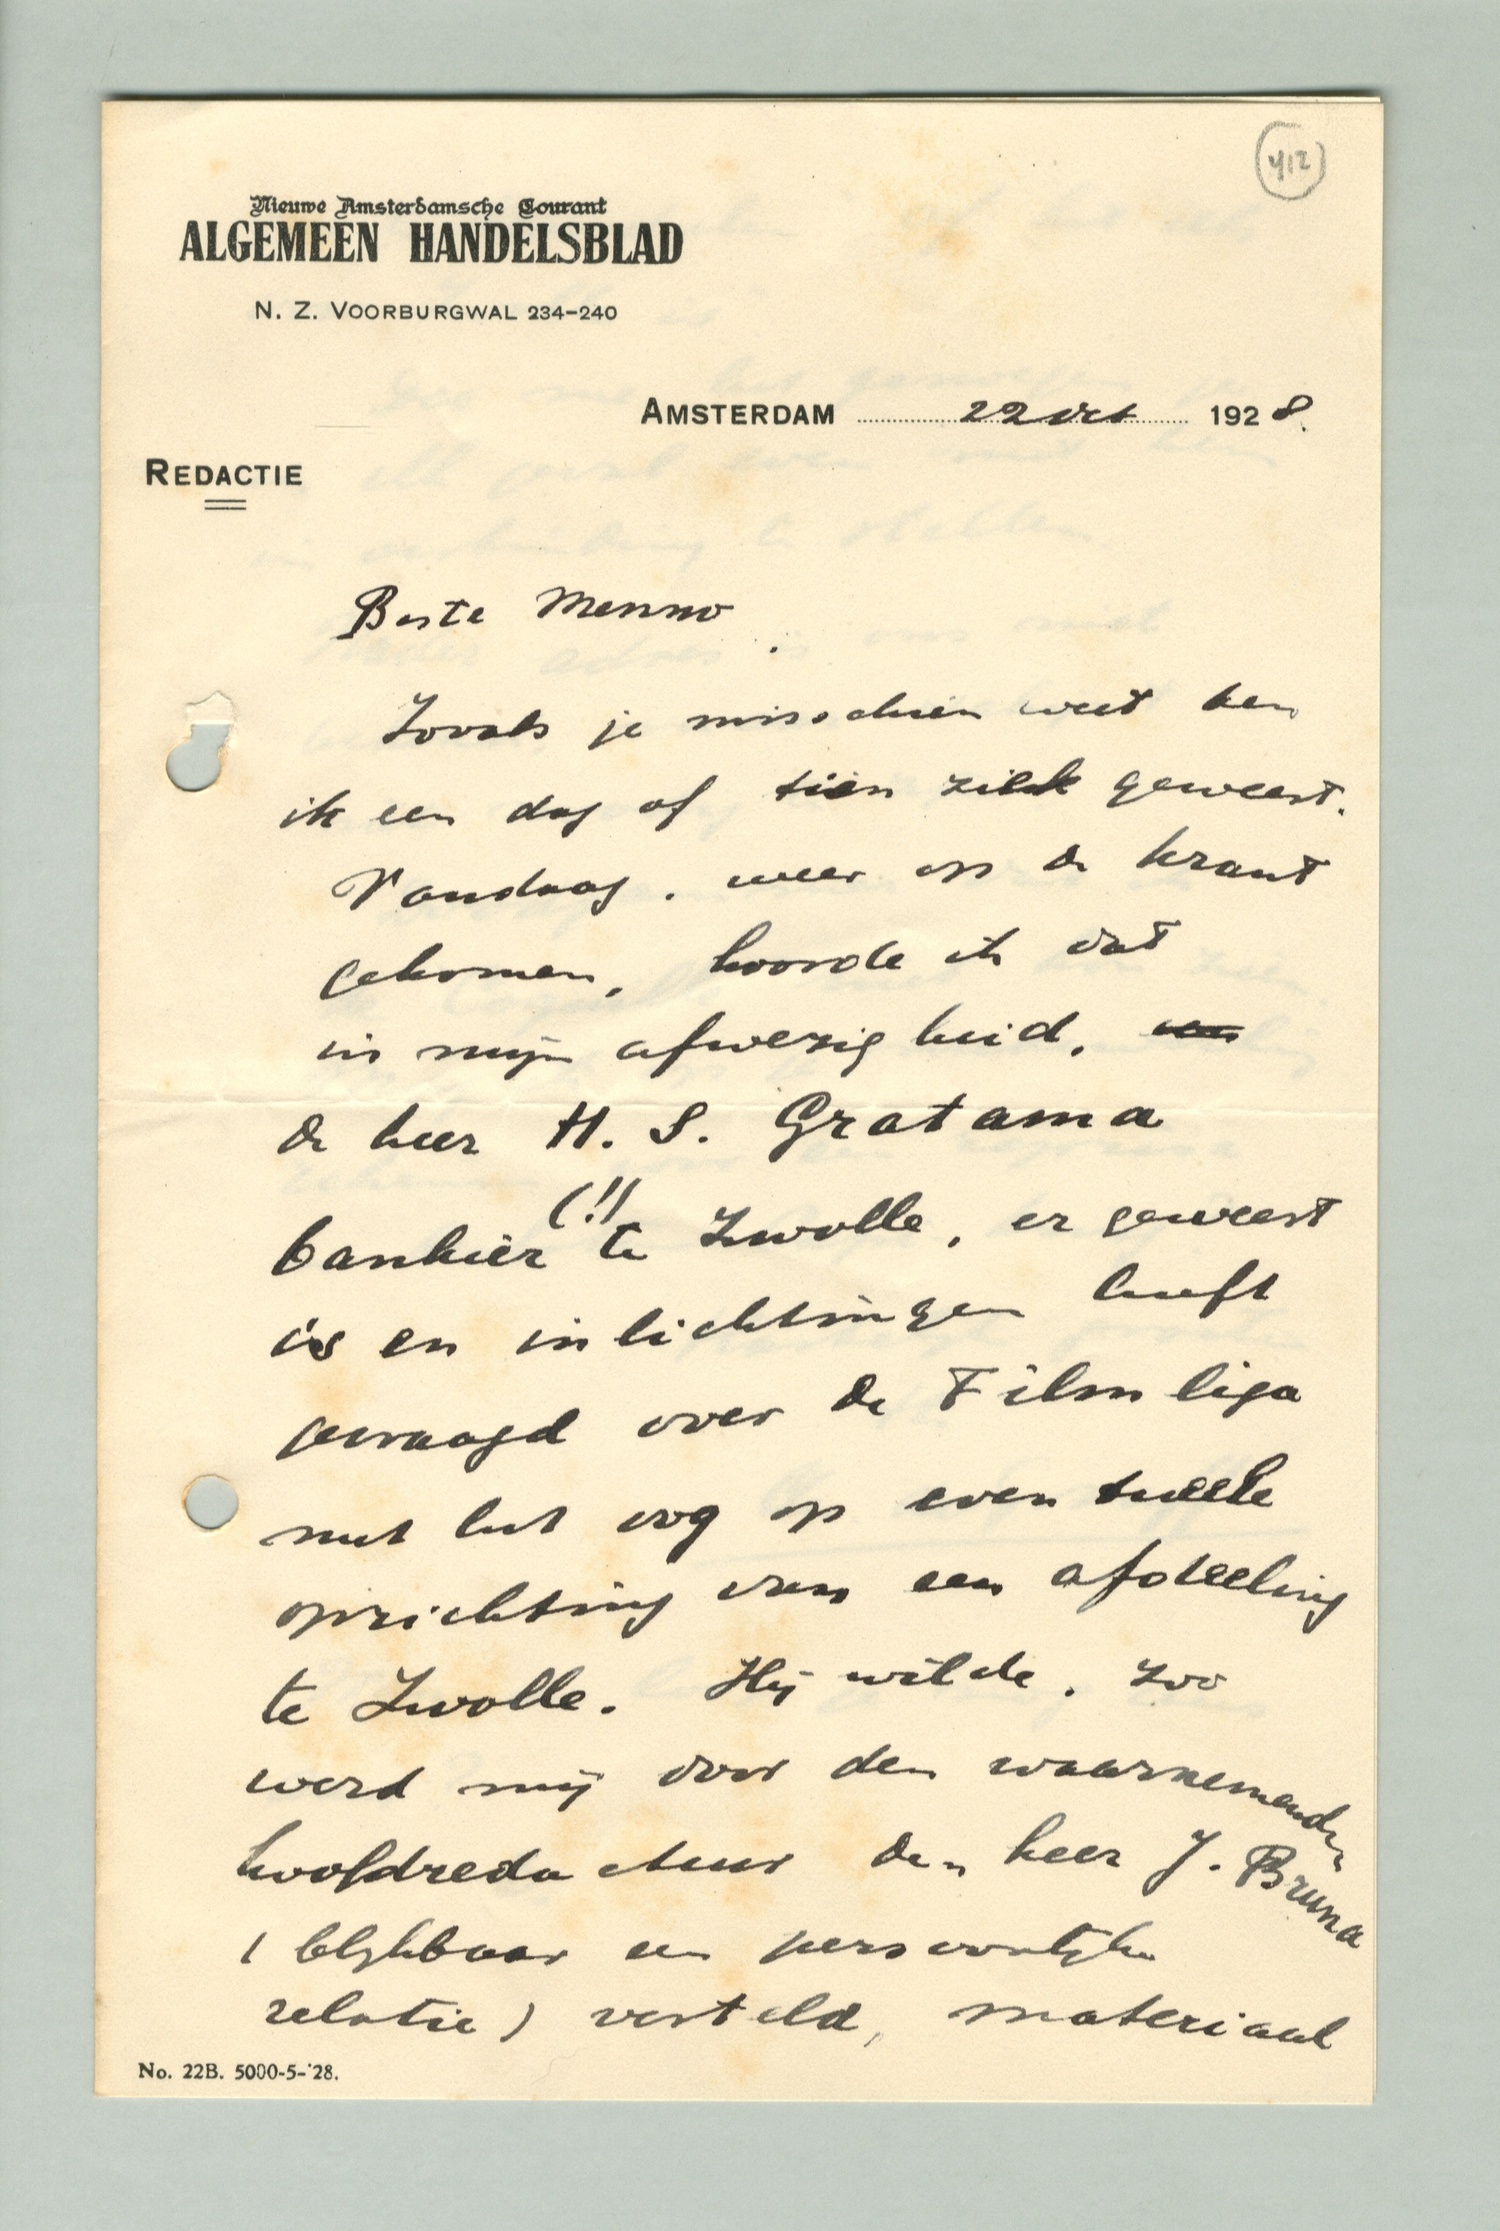 412
Nieuwe Amsterdamsche Courant
ALGEMEEN HANDELSBLAD
N. Z. VOORBURGWAL 234-240
AMSTERDAM 22 Oct 1928.
REDACTIE
Beste Menno
Zooals je misschien weet ben
ik een dag of tien ziek geweest.
Vandaag, weer op de krant
gekomen, hoorde ik dat
in mijn afwezigheid,
de heer H. S. Gratama
bankier (!!) te Zwolle, er geweest
is en inlichtingen heeft
gevraagd over de Filmliga
met het oog op eventueele
oprichting van een afdeeling
te Zwolle. Hij wilde, zoo
werd mij door den waarnemenden
hoofdredacteur den heer J. Bruna
(blijkbaar een persoonlijke
relatie) verteld, materiaal
No. 22B. 5000-5-'28.